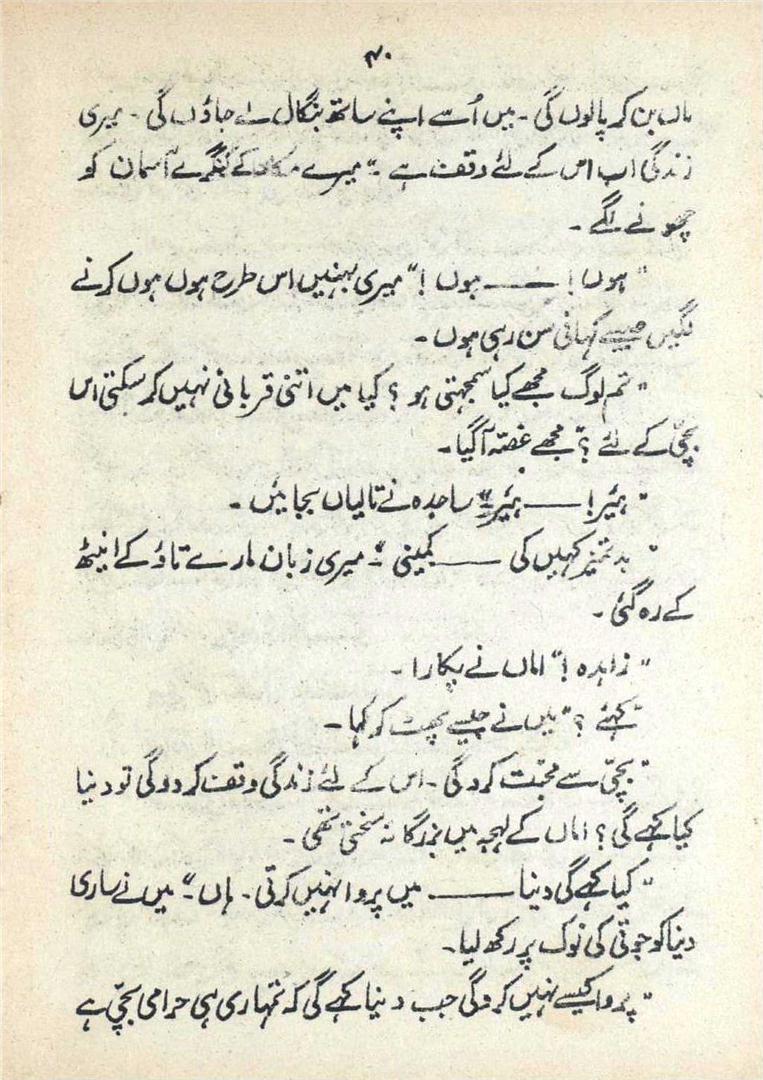 ۴۰
ماں بن کر پالوں گی ۔ میں اُسے اپنے ساتھ بنگال لے جاؤں گی ۔ میری
زندگی اب اس کے لئے وقف ہے ۔" میرے مکان کے کنگرے آسمان کو
چھونے لگے ۔
"ہوں! —— ہوں !" میری بہنیں اس طرح ہوں ہوں کرنے
لگیں جیسے کہانی سن رہی ہوں ۔
"تم لوگ مجھے کیا سمجھتی ہو ؟ کیا میں اتنی قربانی نہیں کر سکتی اس
بچّی کے لئے ؟" مجھے غصّہ آگیا ۔
"ہیئر! —— ہیئر!" ساجدہ نے تالیاں بجائیں ۔
"بدتمیز کہیں کی —— کمینی ۔" میری زبان مارے تاؤ کے اینٹھ
کے رہ گئی ۔
"زاہدہ !" اماں نے پکارا ۔
"کہئے ؟" میں نے جیسے پھٹ کر کہا ۔
"بچّی سے محبّت کروگی ۔ اس کے لئے زندگی وقف کر دوگی تو دنیا
کیا کہے گی ؟ اماں کے لہجہ میں بزرگانہ سختی تھی ۔
"کیا کہے گی دنیا —— میں پروا نہیں کرتی ۔ ہاں ۔" میں نے ساری
دنیا کو جوتی کی نوک پر رکھ لیا ۔
"پروا کیسے نہیں کروگی جب دنیا کہے گی کہ تمہاری ہی حرامی بچّی ہے